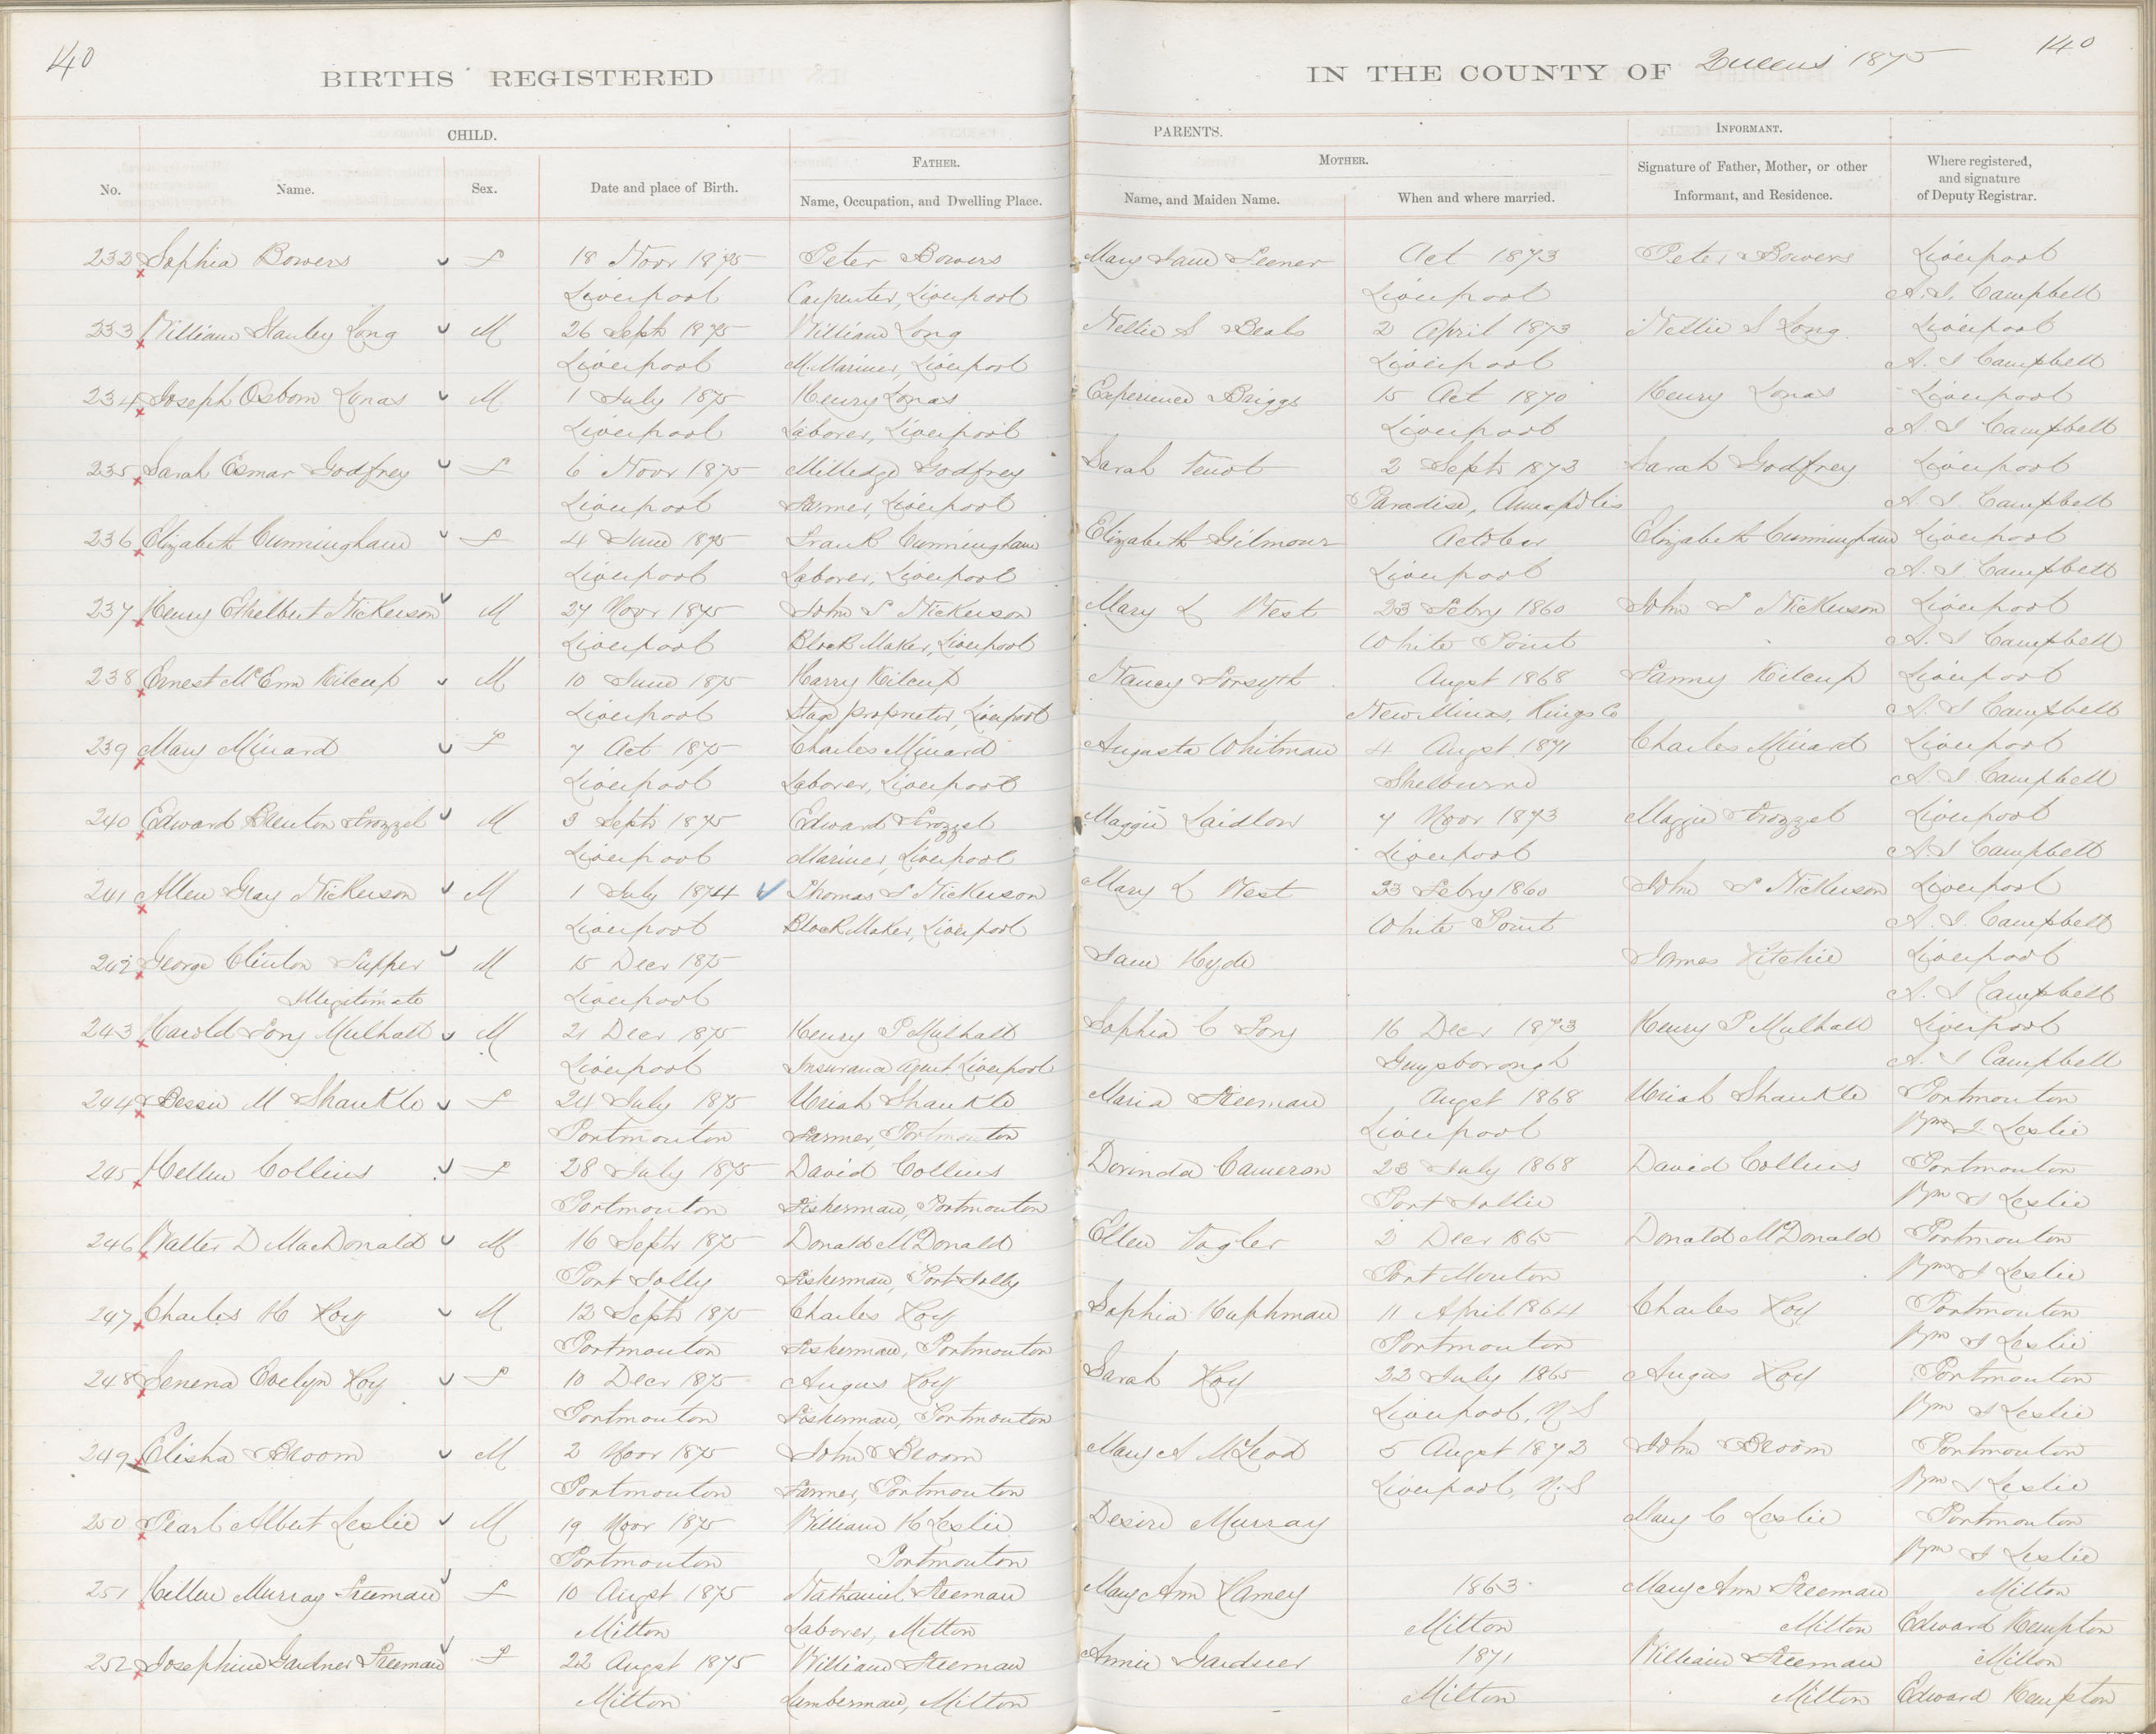 140
140
BIRTHS REGISTERED
IN THE COUNTY OF Queens 1875
CHILD.
PARENTS.
INFORMANT.
FATHER.
MOTHER.
Signature of Father, Mother, or other
Informant, and Residence.
Where registered,
and signature
of Deputy Registrar.
No. Name. Sex. Date and place of Birth. Name, Occupation, and Dwelling Place. Name, and Maiden Name. When and where married.
232 Sophia Bowers F 18 Novr 1875 Peter Bowers Mary Jane Oct 1873 Peter Bowers Liverpool
Liverpool Carpenter, Liverpool Liverpool A. S. Campbell
233 William Stanley Long M 26 Septr 1875 William Long Nellie S Beals 2 April 1873 Nellie S Long Liverpool
Liverpool M. Mariner, Liverpool Liverpool A. S Campbell
234 Joseph Osborn Lonas M 1 July 1875 Henry Lonas Experience Briggs 15 Oct 1870 Henry Lonas Liverpool
Liverpool Laborer, Liverpool Liverpool A. S Campbell
235 Sarah Esmar Godfrey F 6 Novr 1875 Milledge Godfrey Sarah 2 Septr 1873 Sarah Godfrey Liverpool
Liverpool Farmer, Liverpool Paradise, Annapolis A. S Campbell
236 Elizabeth Cunningham F 4 June 1875 Frank Cunningham Elizabeth Gilmour October Elizabeth Cunningham Liverpool
Liverpool Laborer, Liverpool Liverpool A. S. Campbell
237 Henry Ethelbert Nickerson M 27 Novr 1875 John S Nickerson Mary L West 23 Febry 1860 John S Nickerson Liverpool
Liverpool Block Maker, Liverpool White Point A. S Campbell
238 Ernest Kilcup M 10 June 1875 Harry Kilcup Nancy Forsyth Augst 1868 Fanny Kilcup Liverpool
Liverpool Stage proprietor, Liverpool New Minas, Kings Co A. S Campbell
239 Mary Minard F 7 Oct 1875 Charles Minard Augusta Whitman 4 Augst 1871 Charles Minard Liverpool
Liverpool Laborer, Liverpool Shelburne A. S Campbell
240 Edward Brenton Frozzel M 3 Septr 1875 Edward Frozzel Maggie Laidlow 7 Novr 1873 Maggie Frozzel Liverpool
Liverpool Mariner, Liverpool Liverpool A. S Campbell
241 Allen Gray Nickerson M 1 July 1874 Thomas S Nickerson Mary L West 23 Febry 1860 John S Nickerson Liverpool
Liverpool Block Maker, Liverpool White Point A. S. Campbell
242 George Clinton Tupper M 15 Decr 1875 Jane Hyde James Ritchie Liverpool
Illegitimate Liverpool A. S Campbell
243 Harold Mulhall M 21 Decr 1875 Henry P Mulhall Sophia C 16 Decr 1873 Henry P Mulhall Liverpool
Liverpool Insurance Agent Liverpool Guysborough A. S Campbell
244 Bessie M Shankle F 24 July 1875 Uriah Shankle Maria Freeman Augst 1868 Uriah Shankle Portmouton
Portmouton Farmer, Portmouton Liverpool Wm S Leslie
245 Hellen Collins F 28 July 1875 David Collins Dorinda Cameron 23 July 1868 David Collins Portmouton
Portmouton Fisherman, Portmouton Port Jollie Wm S Leslie
246 Walter D MacDonald M 16 Septr 1875 Donald McDonald Ellen Vogler 2 Decr 1865 Donald McDonald Portmouton
Port Jolly Fisherman, Port Jolly Port Mouton Wm S Leslie
247 Charles H Roy M 13 Septr 1875 Charles Roy Sophia Huphman 11 April 1864 Charles Roy Portmouton
Portmouton Fisherman, Portmouton Portmouton Wm S Leslie
248 Senena Evelyn Roy F 10 Decr 1875 Angus Roy Sarah Roy 22 July 1865 Angus Roy Portmouton
Portmouton Fisherman, Portmouton Liverpool, N. S Wm S Leslie
249 Elisha Bloom M 2 Novr 1875 John Bloom Mary A McLeod 5 Augst 1872 John Bloom Portmouton
Portmouton Farmer, Portmouton Liverpool, N. S Wm S Leslie
250 Pearl Albert Leslie M 19 Novr 1875 William H Leslie Desire Murray Mary C Leslie Portmouton
Portmouton Portmouton Wm S Leslie
251 Hillen Murray Freeman F 10 Augst 1875 Nathaniel Freeman Mary Ann Ramey 1863 Mary Ann Freeman Milton
Milton Laborer, Milton Milton Milton Edward Kempton
252 Josephine Gardner Freeman F 22 Augst 1875 William Freeman Annie Gardner 1871 William Freeman Milton
Milton Lumberman, Milton Milton Milton Edward Kempton